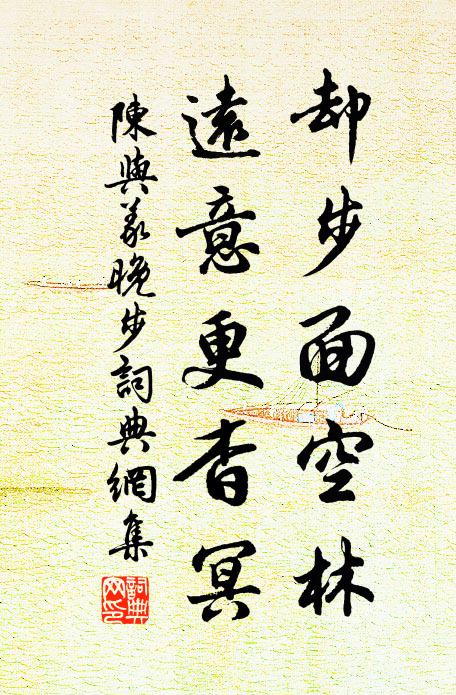 却步面空林
遠意更杳冥
陳與義晚步詞典網集
詞典网印